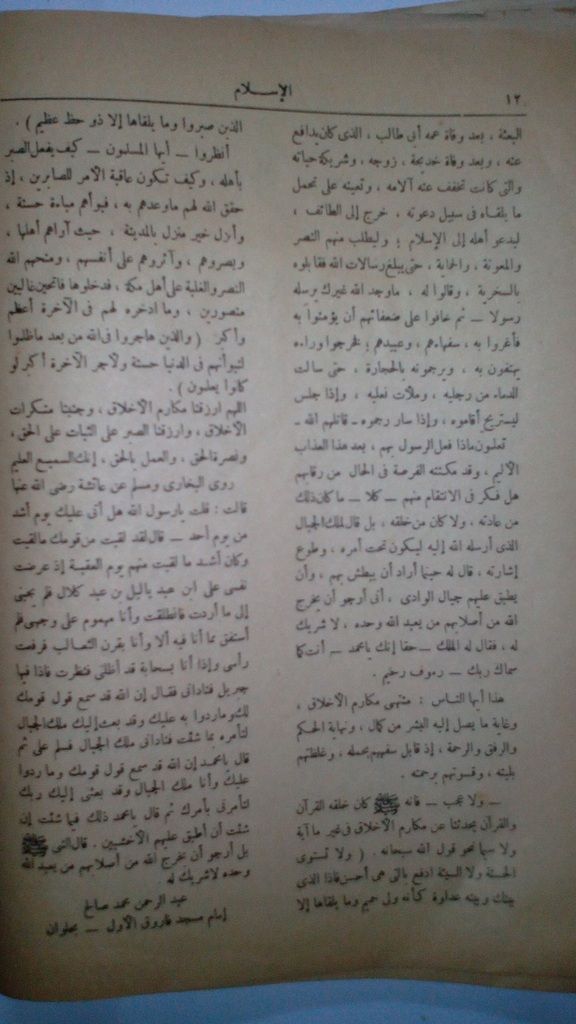 ١٢
الإسلام
البعثة ، بعد وفاة عمه أبى طالب ، الذى كان يدافع
عنه ، وبعد وفاة خديجة ، زوجه ، وشريكة حياته
والتى كانت تخفف عنه آلامه ، وتعينه على تحمل
ما يلقاه فى سبيل دعوته ، خرج إلى الطائف ،
ليدعو أهله إلى الإسلام ؛ وليطلب منهم النصر
والمعونة ، والحماية ، حتى يبلغ رسالات الله فقابلوه
بالسخرية ، وقالوا له ، ماوجد الله غيرك يرسله
رسولا — ثم خافوا على ضعفائهم أن يؤمنوا به
فأغروا به ، سفهاءهم ، وعبيدهم ؛ فخرجوا وراءه
يهتفون به ، ويرجمونه بالحجارة ، حتى سالت
الدماء من رجليه ، وملأت نعليه ، وإذا جلس
ليستريح أقاموه ، وإذا سار رجموه ـ قاتلهم الله ـ
تعلمون ماذا فعل الرسول بهم ، بعد هذا العذاب
الأليم ، وقد مكنته الفرصة فى الحال من رقابهم
هل فكر فى الانتقام منهم — كلا — ما كان ذلك
من عادته ، ولا كان من خلقه ، بل قال لملك الجبال
الذى أرسله الله إليه ليكون تحت أمره ، وطوع
إشارته ، قال له حينما أراد أن يبطش بهم ، وأن
يطبق عليهم جبال الوادى ، أنى أرجو أن يخرج
الله من أصلابهم من يعبد الله وحده ، لا شريك
له ، فقال له الملك — حقا إنك يامحمد — أنت كما
سماك ربك — رءوف رحيم .
هذا أيها الناس : منتهى مكارم الأخلاق ،
وغاية ما يصل إليه البشر من كمال ، ونهاية الحكم
والرفق والرحمة ، إذ قابل سفههم بحمله ، وغلظتهم
بلينه ، وقسوتهم برحمته .
— ولا عجب — فانه ﷺ كان خلقه القرآن
والقرآن يحدثنا عن مكارم الأخلاق فى غير ما آية
ولا سيما نحو قول الله سبحانه . ( ولا تستوى
الحسنة ولا السيئة ادفع بالتى هى أحسن فاذا الذى
بينك وبينه عداوة كأنه ولى حميم وما يلقاها إلا
الذين صبروا وما يلقاها إلا ذو حظ عظيم ) .
أنظروا — أيها المسلمون — كيف يفعل الصبر
بأهله ، وكيف تكون عاقبة الأمر للصابرين ، إذ
حقق الله لهم ماوعدهم به ، فبوأهم مباءة حسنة ،
وأنزل خير منزل بالمدينة ، حيث آواهم أهلها ،
وبصروهم ، وآثروهم على أنفسهم ، ومنحهم الله
النصر والغلبة على أهل مكة ، فدخلوها فاتحين غالبين
منصورين ، وما ادخره لهم فى الآخرة أعظم
وأكبر ( والذين هاجروا فى الله من بعد ماظلموا
لنبوأنهم فى الدنيا حسنة ولأجر الآخرة أكبر لو
كانوا يعلمون ) .
اللهم ارزقنا مكارم الأخلاق ، وجنبنا منكرات
الأخلاق ، وارزقنا الصبر على الثبات على الحق ،
ونصرة الحق ، والعمل بالحق ، إنك السميع العليم
روى البخارى ومسلم عن عائشة رضى الله عنها
قالت : قلت يارسول الله هل أتى عليك يوم أشد
من يوم أحد — قال لقد لقيت من قومك مالقيت
وكان أشد ما لقيت منهم يوم العقبة إذ عرضت
نفسى على ابن عبد ياليل بن عبد كلال فلم يجبنى
إلى ما أردت فانطلقت وأنا مهموم على وجهى فلم
أستفق مما أنا فيه ألا وأنا بقرن الثعالب فرفعت
رأسى وإذا أنا بسحابة قد أظلتنى فنظرت فاذا فيها
جبريل فنادانى فقال إن الله قد سمع قول قومك
لك وماردوا به عليك وقد بعث إليك ملك الجبال
لتأمره بما شئت فنادانى ملك الجبال فسلم على ثم
قال يامحمد إن الله قد سمع قول قومك وما ردوا
عليك وأنا ملك الجبال وقد بعثنى إليك ربك
لتأمرنى بأمرك ثم قال يامحمد ذلك فيما شئت إن
شئت أن أطبق عليهم الأخشبين . قال النبى ﷺ
بل أرجو أن يخرج الله من أصلابهم من يعبد الله
وحده لاشريك له .
عبد الرحمن محمد صالح
إمام مسجد فاروق الأول — بحلوان